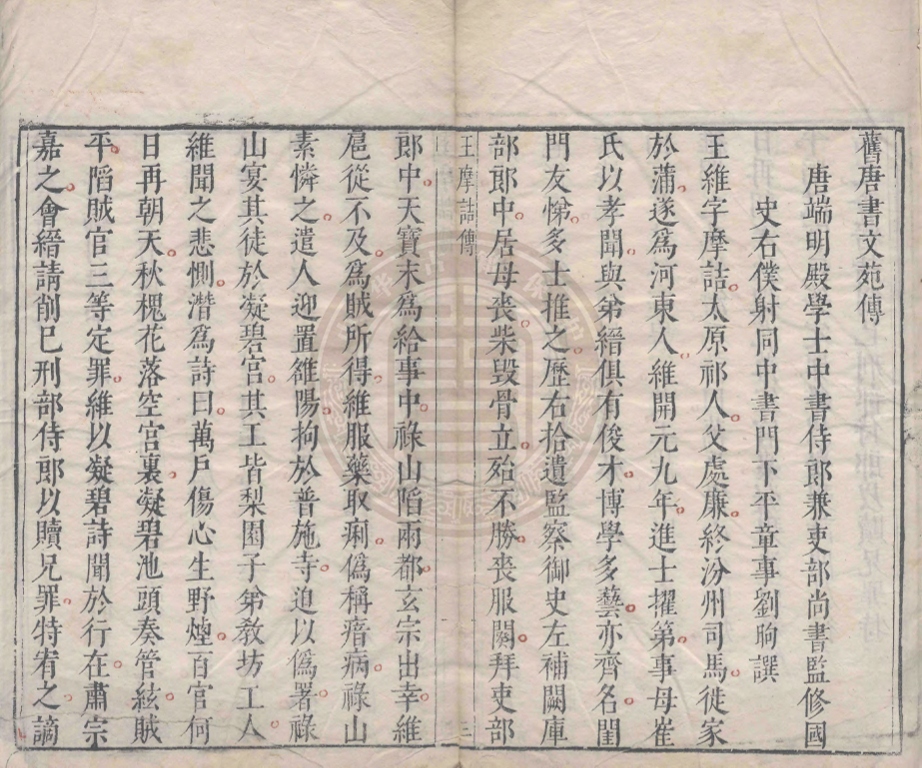 舊唐書文苑傳
唐端明殿學士中書侍郎兼吏部尚書監修國
史右僕射同中書門下平章事劉昫譔
王維字摩詰太原祁人父處廉終汾州司馬徙家
於蒲遂爲河東人維開元九年進士擢第事母崔
氏以孝聞與弟縉俱有俊才博學多藝亦齊名閨
門友悌多士推之歷右拾遺監察御史左補闕庫
部郎中居母喪柴毀骨立殆不勝喪服闋拜吏部
王摩詰傳 三
郎中天寶末爲給事中祿山陷兩都玄宗出幸維
扈從不及爲賊所得維服藥取痢僞稱瘖病祿山
素憐之遣人迎置雒陽拘於普施寺迫以僞署祿
山宴其徒於凝碧宮其工皆梨園子弟敎坊工人
維聞之悲惻潛爲詩曰萬戶傷心生野煙百官何
日再朝天秋槐花落空宮裏凝碧池頭奏管絃賊
平陷賊官三等定罪維以凝碧詩聞於行在肅宗
嘉之會縉請削己刑部侍郎以贖兄罪特宥之謫